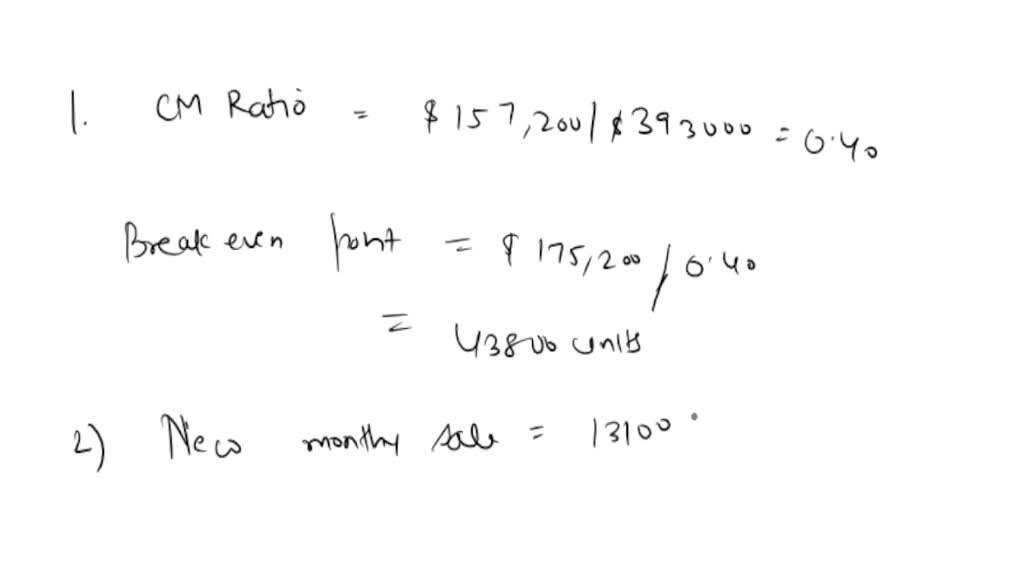 1. CM Ratio = $157,200/$393000 = 0.40
Break even point = $175,200/0.40
= 43800 units
2) New monthy sale = 13100